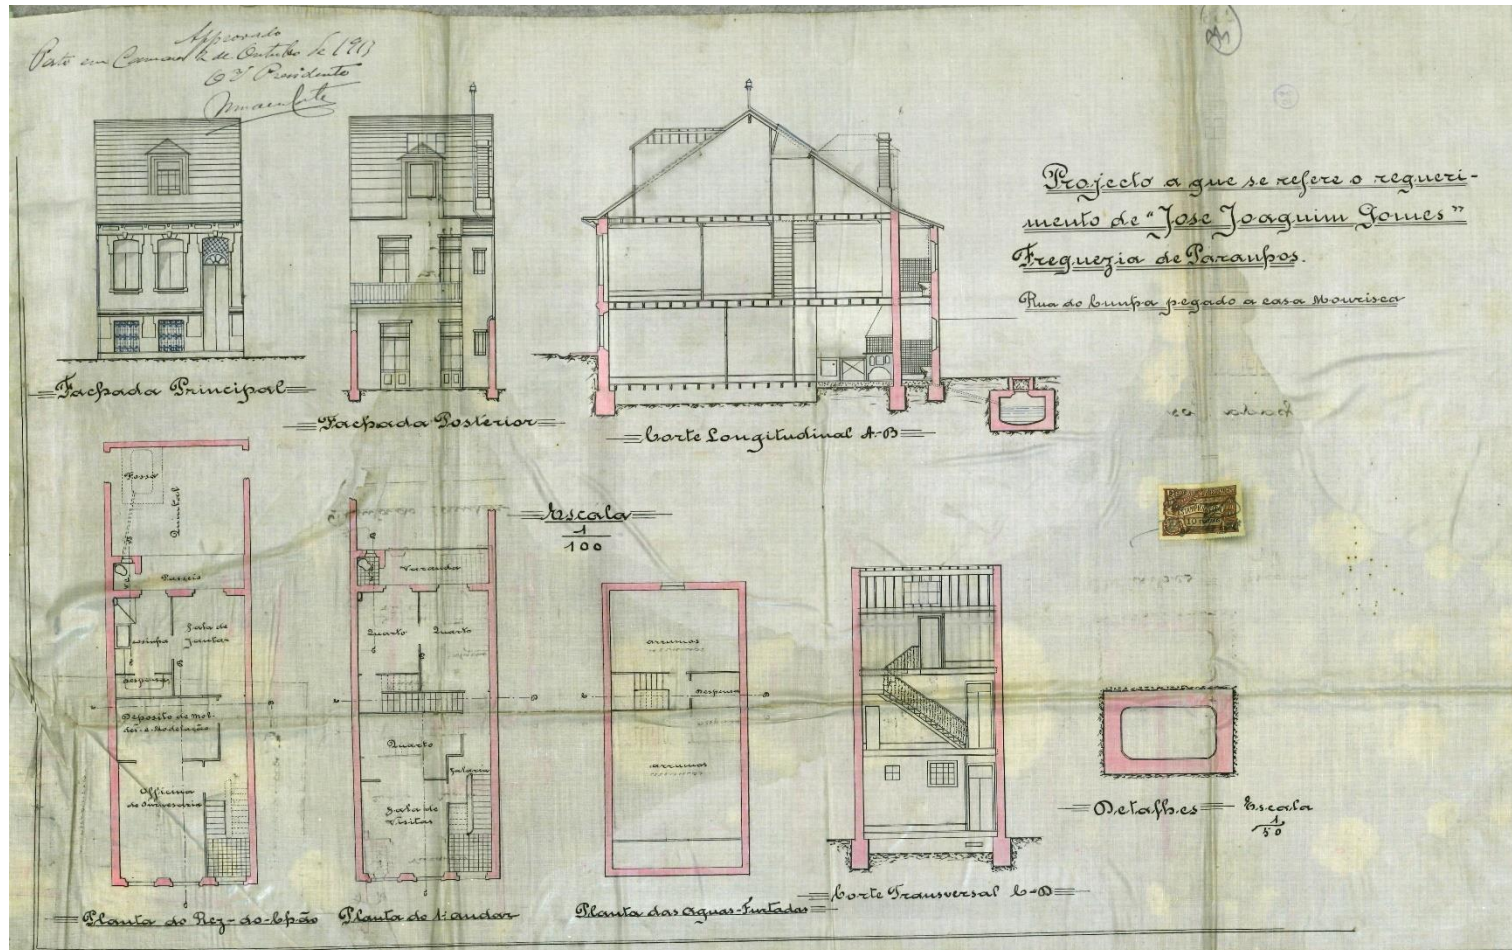 Approvado
Porto em Camara 2 de Outubro de 1913
O Presidente
Projecto a que se refere o requeri-
mento de "José Joaquim Gomes"
Freguezia de Paranhos.
Rua do Cunha pegado a casa Mourisca
Fachada Principal
Fachada Posterior
Corte Longitudinal A-B
Escala
1
100
Fossa
Quintal
W.C.
Passeio
Cosinha
Sala de
Jantar
Despensa
Deposito de Mol-
des e Modelação
Officina
de Ourivesaria
Planta do Rez-do-Chão
Varanda
Quarto
Quarto
Quarto
Galeria
Sala de
Visitas
Planta do 1º andar
arrumos
Despensa
arrumos
Planta das Aguas-Furtadas
Corte Transversal C-D
Detalhes
Escala
1
50